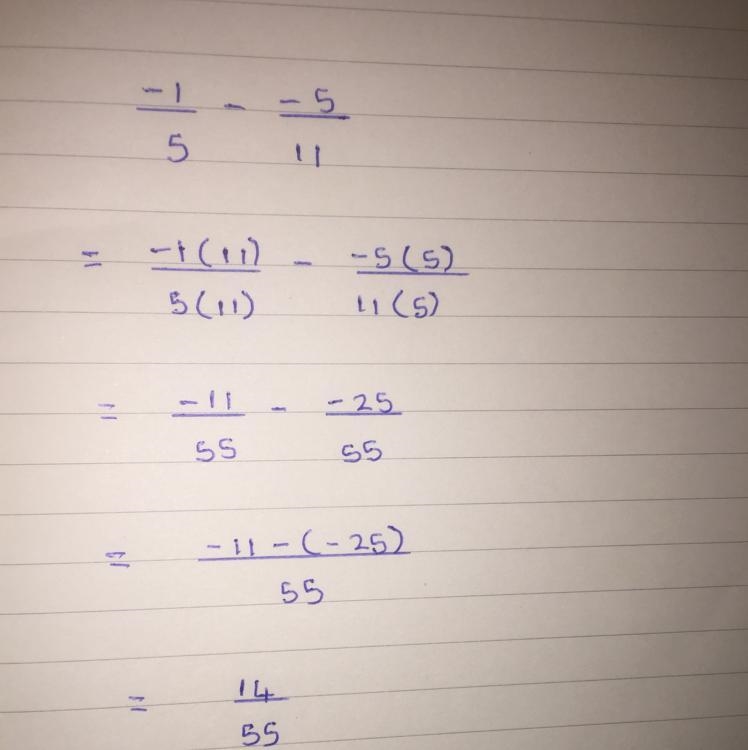 -1/5 - -5/11
= -1(11)/5(11) - -5(5)/11(5)
= -11/55 - -25/55
= -11-(-25)/55
= 14/55